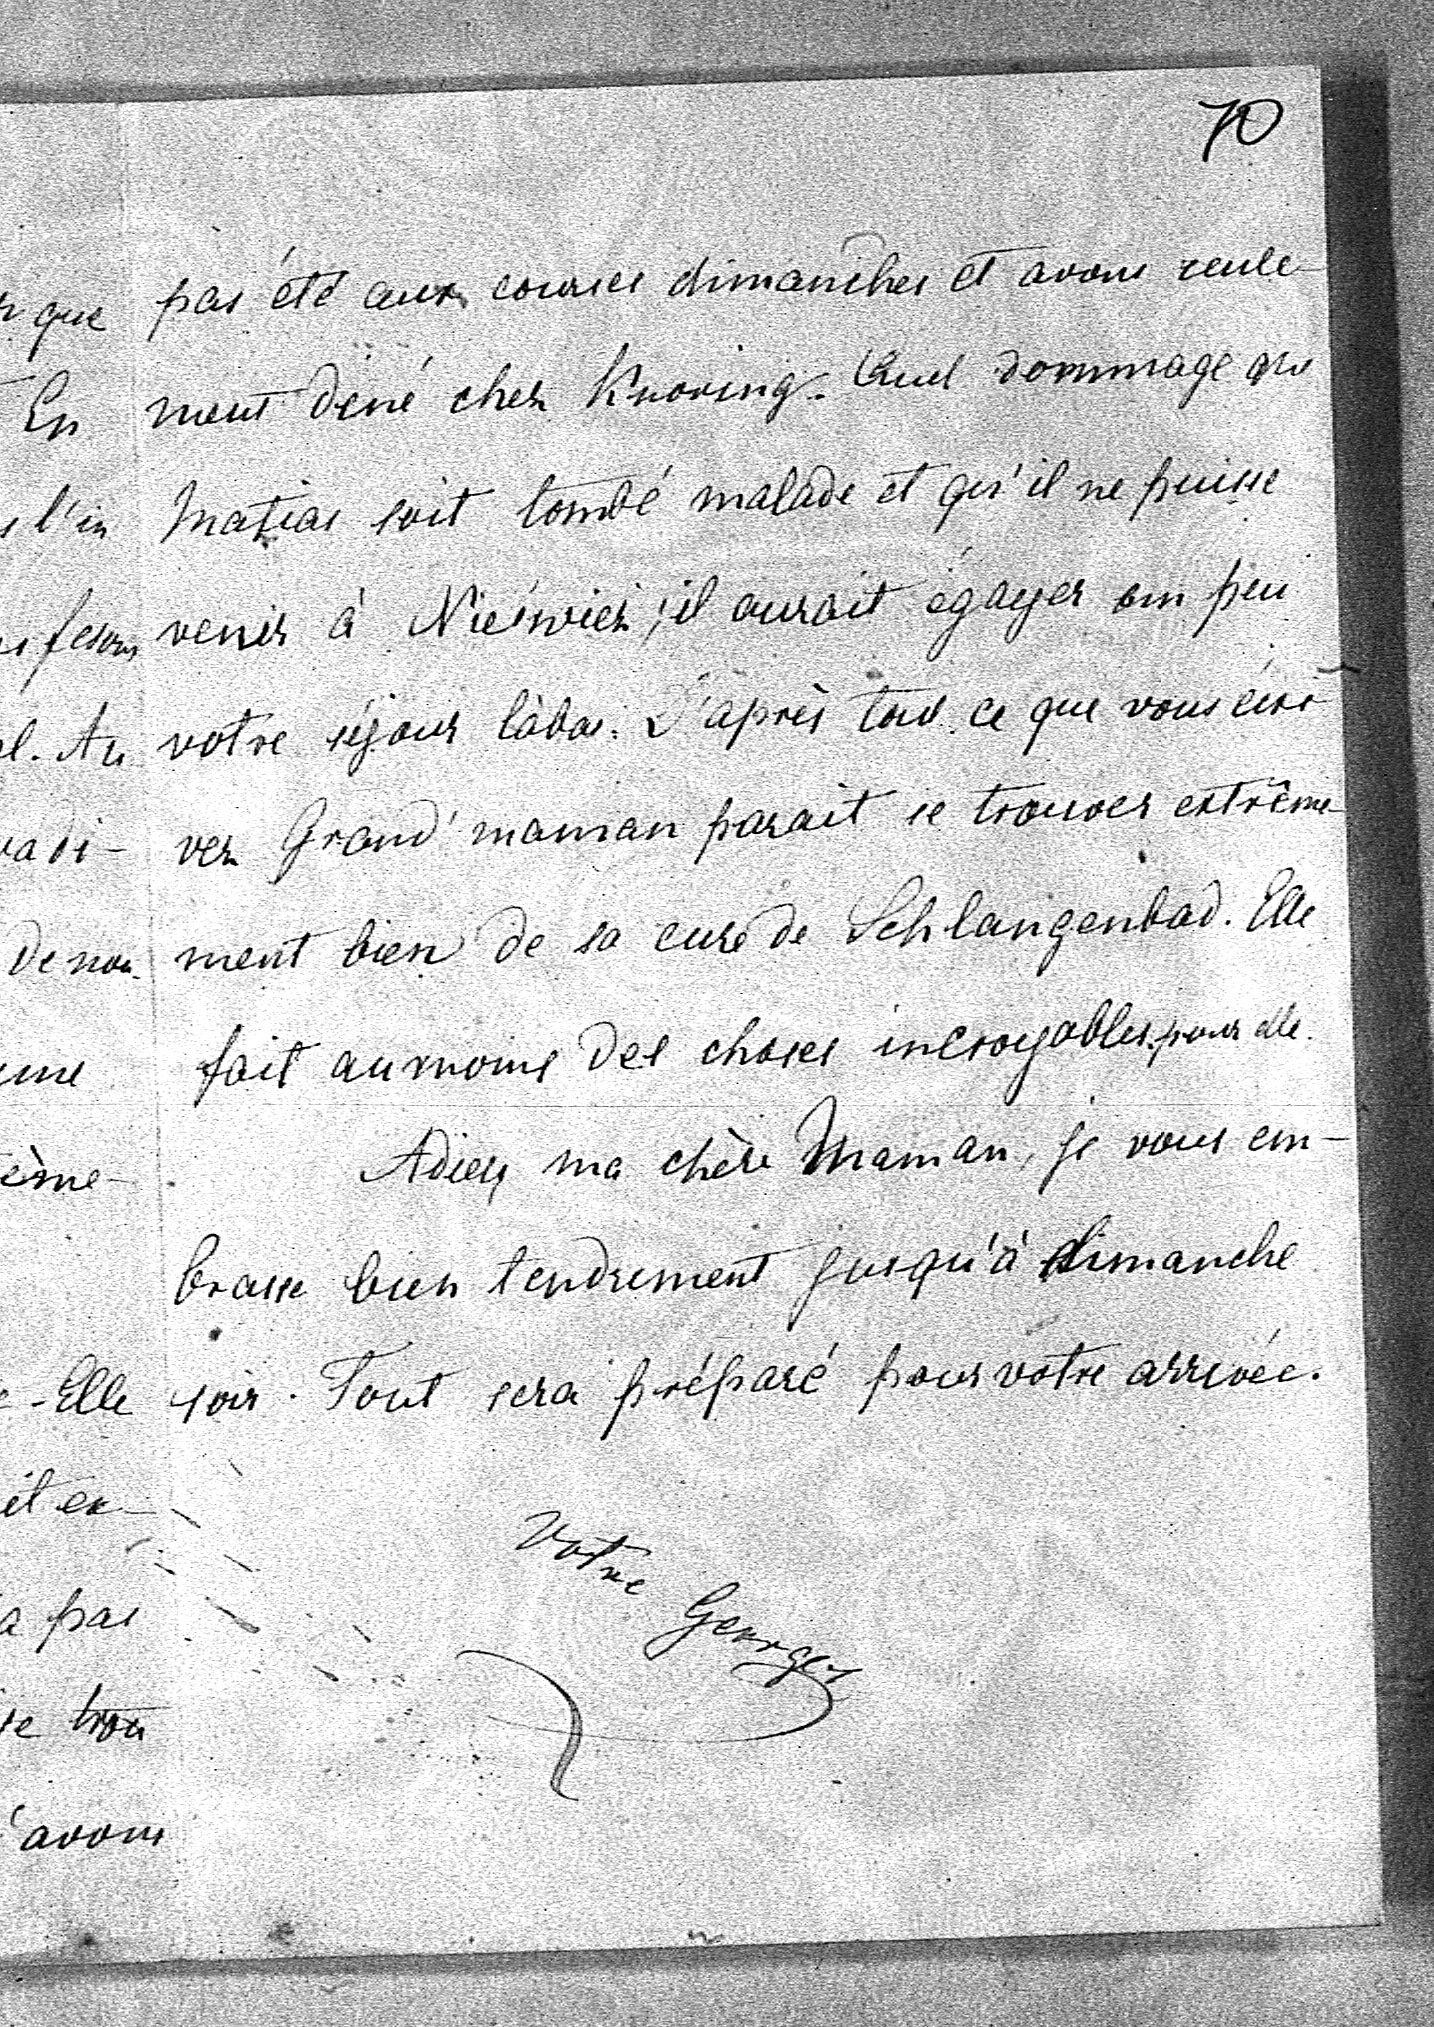 70
pas été aux courses dimanches et avons seule-
ment diné chez Knoring. Quel dommage que
Matias soit tombé malade et qu'il ne puisse
venir à Nieświeź; il aurait égayer un peu
votre séjour làbas. D'après tout ce que vous écri-
vez Grand'maman parait se trouver extrême-
ment bien de sa cure de Schlangenbad. Elle
fait aumoins des choses incroyables pour elle.
Adieu ma chère Maman, je vous em-
brasse bien tendrement jusqu'à dimanche
soir. Tout sera préparé pour votre arrivée.
Votre Georges
que
En
l'in
fesons
Au
di-
de nou
ème-
Elle
et ex-
pas
se trou
avons